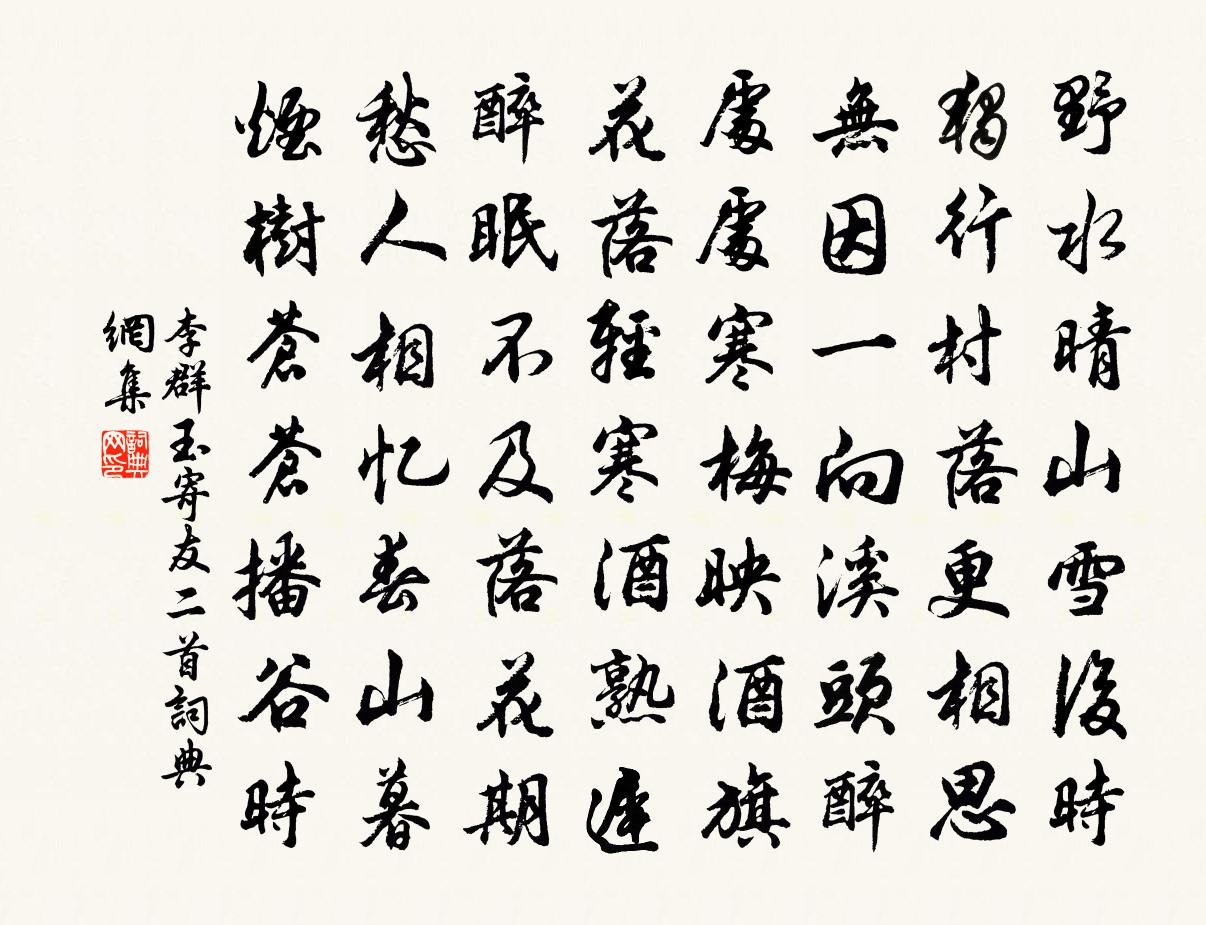 野水晴山雪後時
獨行村落更相思
無因一向溪頭醉
處處寒梅映酒旗
花落輕寒酒熟遲
醉眠不及落花期
愁人相忆春山暮
煙樹蒼蒼播谷時
李群玉寄友二首詞典
網集
詞典
网印